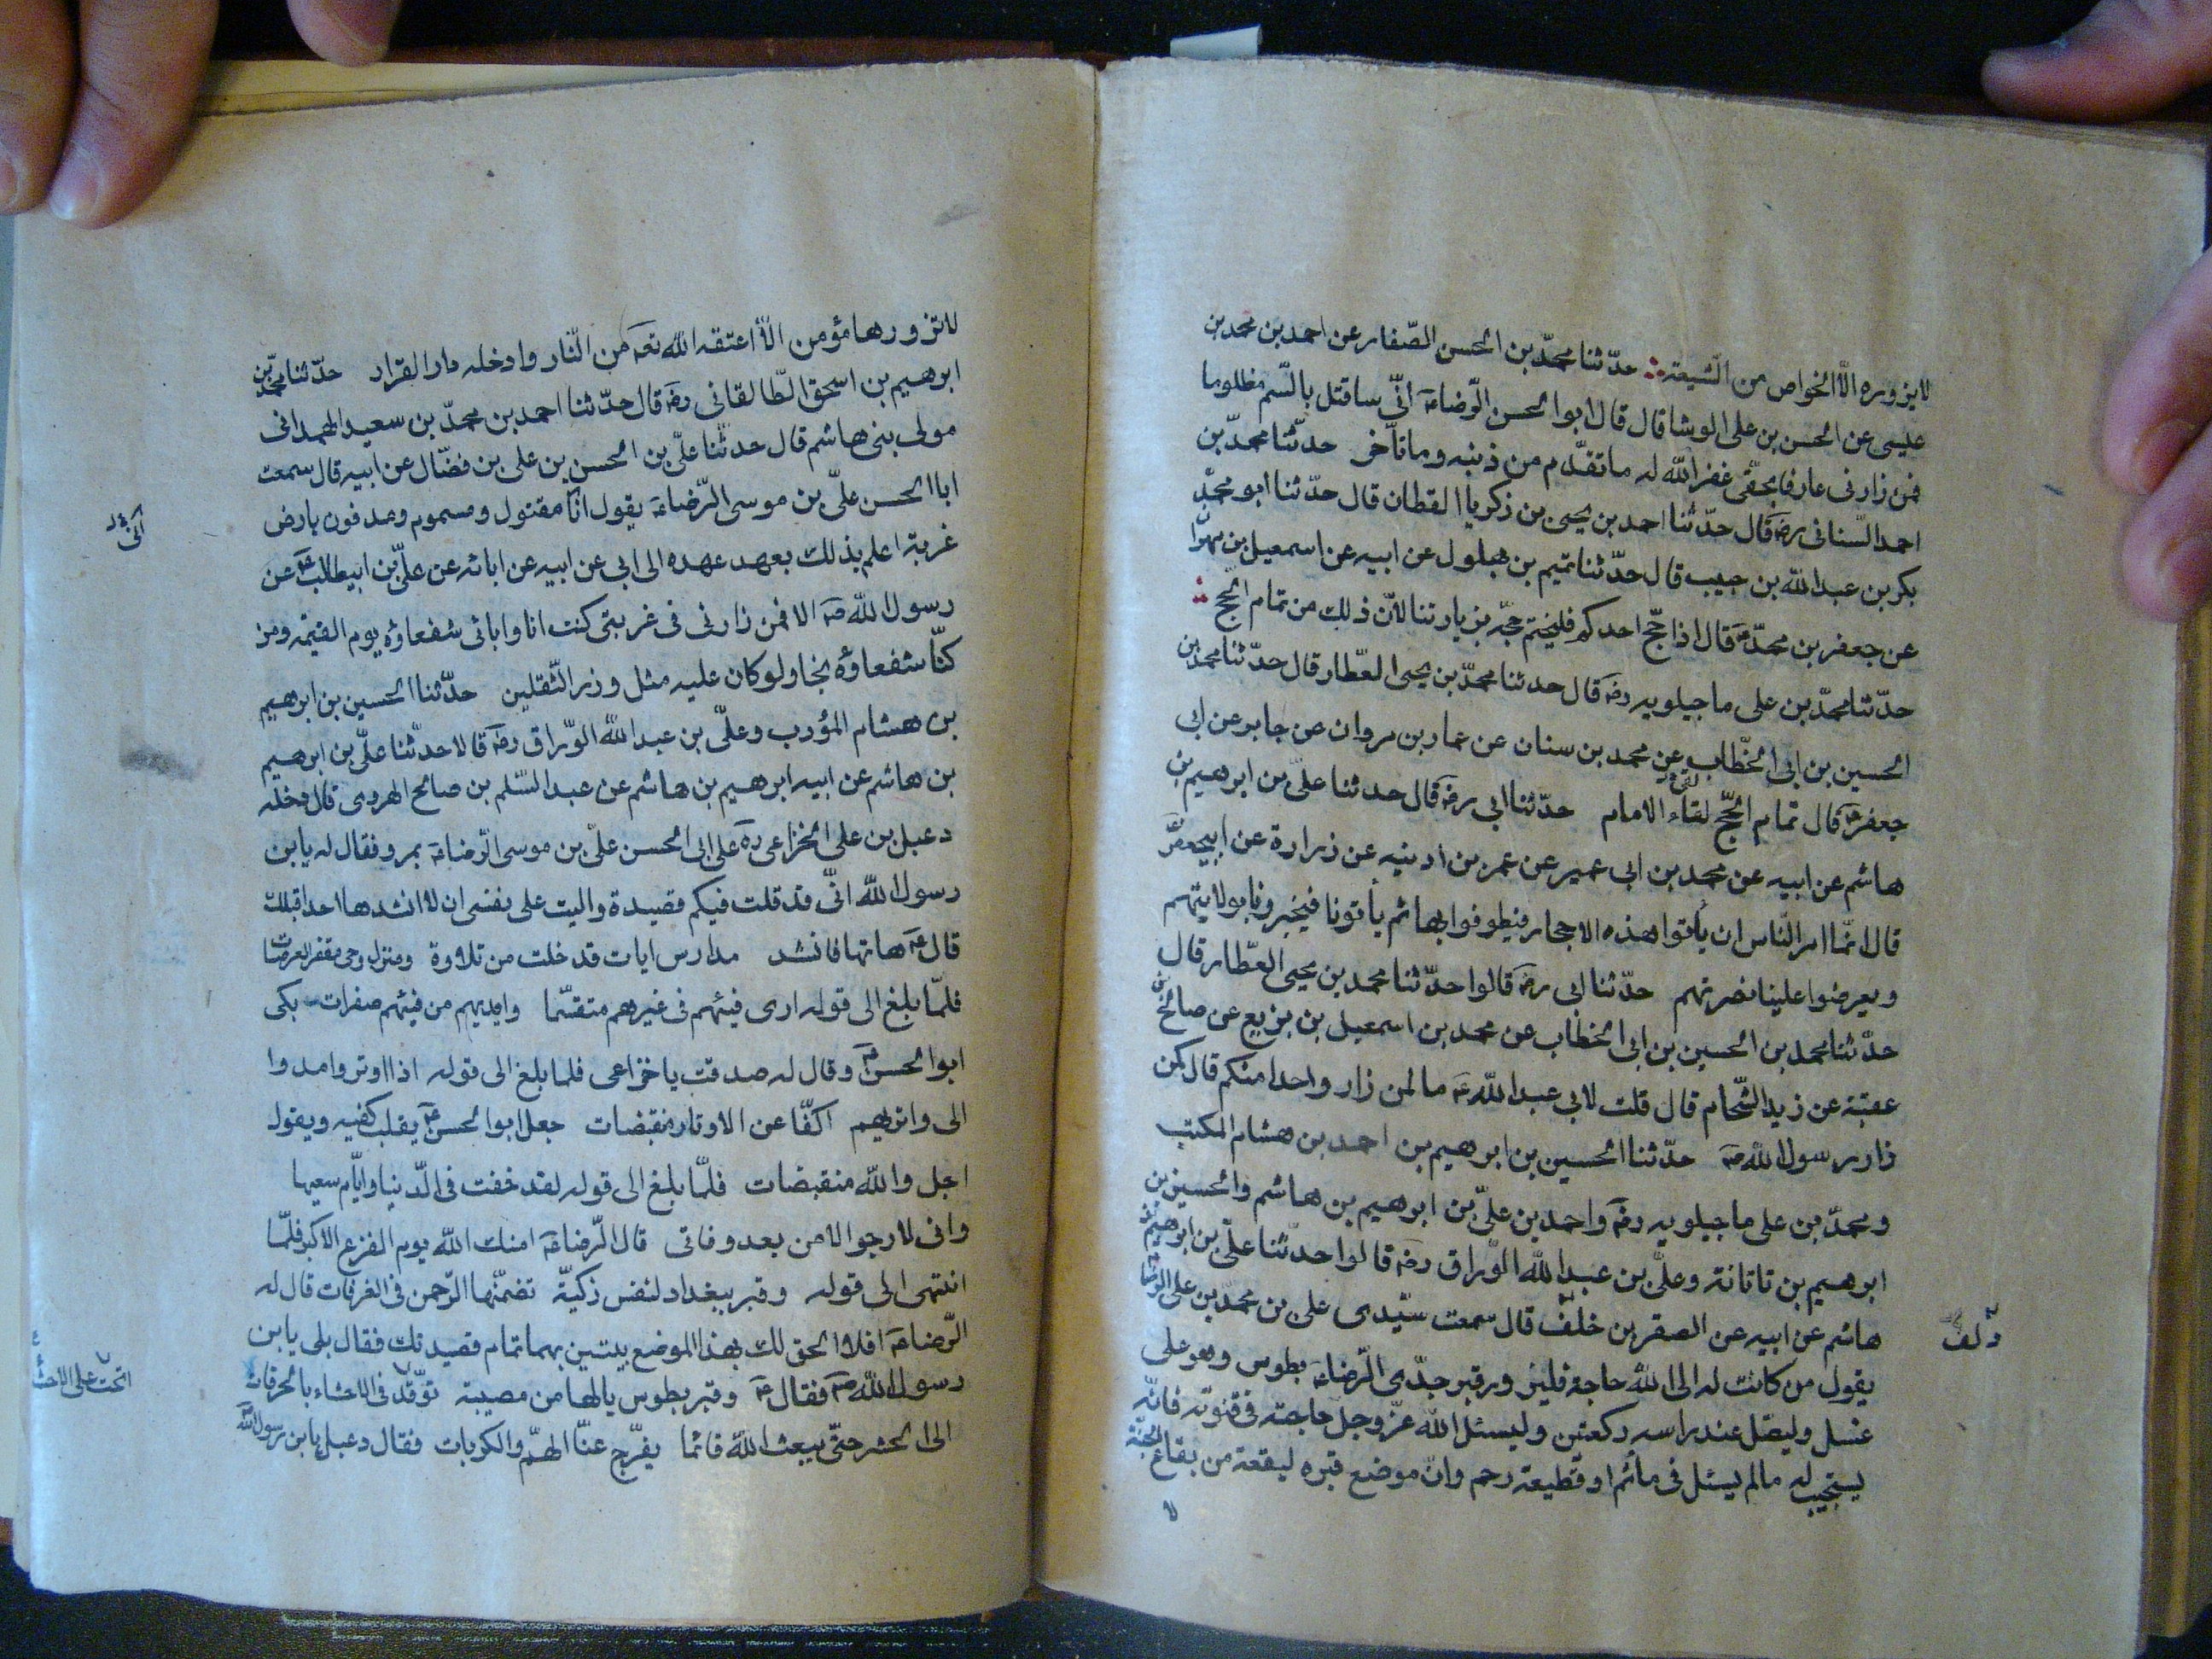 لايزوره الّا الخواص من الشيعة حدّثنا محمّد بن الحسن الصّفار عن احمد بن محمد بن
عيسى عن الحسن بن على الوشا قال قال ابوا الحسن الرّضاعٓ انّى ساقتل بالسّم مظلوما
فمن زارنى عارفا بحقّى غفر الله له ما تقدّم من ذنبه وما تاّخر حدّثنا محمّد بن
احمد السّنانى رضٓ قال حدّثنا احمد بن يحيى بن زكريا القطان قال حدّثنا ابو محمّد
بكر بن عبد الله بن حبيب قال حدّثنا تميم بن بهلول عن ابيه عن اسمعيل بن مهرا
عن جعفر بن محمّدعٓ قال اذا حجّ احدكم فليختم حجّه بزيارتنا لانّ ذلك من تمام الحجّ
حدّثنا محمّد بن على ماجيلويه رضٓ قال حدثنا محمّد بن يحيى العطّار قال حدّثنا محمد بن
الحسين بن ابى الخطّاب عن محمد بن سنان عن عمار بن مروان عن جابر عن ابى
جعفرعٓ قال تمام الحجّ لقاء الامام حدّثنا ابى رضٓ قال حدثنا علىّ بن ابرهيم بن
هاشم عن ابيه عن محمد بن ابى عمير عن عمر بن اذينه عن زرارة عن ابيجعفرعٓ
قال انّما امر النّاس ان يأتوا هذه الاحجار فيطوفوا بها ثم يأتونا فيخبرونا بولايتهم
ويعرضوا علينا نصرتهم حدّثنا ابى رضٓ قالوا حدّثنا محمد بن يحيى العطّار قال
حدّثنا محمد بن الحسين بن ابى الخطاب عن محمد بن اسمعيل بن بزيع عن صالح بن
عقبة عن زيد الشّحام قال قلت لابى عبد اللهعٓ ما لمن زار واحدا منكم قال كمن
زار رسول اللهصٓ حدّثنا الحسين بن ابرهيم بن احمد بن هشام المكتب
ومحمّد بن على ماجيلويه رضٓ واحمد بن علىّ بن ابرهيم بن هاشم والحسين بن
ابرهيم بن تاتانة وعلىّ بن عبد الله الورّاق رضٓ قالوا حدثنا علىّ بن ابرهيم بن
هاشم عن ابيه عن الصقر بن خلف قال سمعت سيّدى على بن محمّد بن على الرضا
دلف
يقول من كانت له الى الله حاجة فليزور قبر جدّى الرّضاعٓ بطوس وهو على
غسل وليصّل عند راسه ركعتين وليسئل الله عزّ وجل حاجته فى قنوته فانّه
يستجيب له ما لم يسئل فى مأثم او قطيعة رحم وانّ موضع قبره لبقعة من بقاع الجنّة
لا
لاتزورها مؤمن الّا اعتقه الله تعٓه من النّار وادخله دار القرار حدّثنا محمّد بن
ابرهيم بن اسحق الطّالقانى رضٓ قال حدّثنا احمد بن محمدّ بن سعيد الهمدانى
مولى بنى هاشم قال حدثنا علىّ بن الحسن بن على بن فضّال عن ابيه قال سمعت
ابا الحسن علىّ بن موسى الرّضاعٓ يقول انا مقتول ومسموم ومدفون بارض
غربة اعلم بذلك بعهد عهده الى ابى عن ابيه عن ابائه عن علىّ بن ابيطالبعٓ عن
رسول اللهصٓ الا فمن زارنى فى غربتى كنت انا وابائى شفعاؤه يوم القيمه ومن
كنّا شفعاؤه نجا ولو كان عليه مثل وزر الثّقلين حدّثنا الحسين بن ابرهيم
بن هشام المؤدب وعلىّ بن عبد الله الورّاق رضٓ قالا حدثنا علىّ بن ابرهيم
بن هاشم عن ابيه ابرهيم بن هاشم عن عبد السّلم بن صالح الهروى قال دخل
دعبل بن على الخزاعى رهٓ على ابى الحسن علىّ بن موسى الرّضاعٓ بمرو فقال له يابن
رسول الله انّى قد قلت فيكم قصيدة واليت على نفسى ان لا انشدها احدا قبلك
قالعٓ هاتها فانشد مدارس ايات قد خلت من تلاوة ومنزل وحى مقفر العرصات
فلمّا بلغ الى قوله ارى فيئهم فى غيرهم متقسّما وايديهم من فيئهم صفرات بكى
ابوا الحسنعٓ وقال له صدقت يا خزاعى فلما بلغ الى قوله اذا اوتروا مدوا
الى واتريهم اكفّا عن الاوتار منقبضات جعل ابوا الحسنعٓ يقلب كفيه ويقول
اجل والله منقبضات فلمّا بلغ الى قوله لقد خفت فى الّدينا وايّام سعيها
وانى لارجوا الامن بعد وفاتى قال الرّضاعٓ امنك الله يوم الفزع الاكبر فلمّا
انتهى الى قوله وقبر ببغداد لنفس زكيّة تضمّنها الرّحمن فى الغرفات قال له
الرّضاعٓ افلا الحق لك بهذا الموضع بيتين بهما تمام قصيدتك فقال بلى يابن
رسول اللهصٓ فقالعٓ وقبر بطوس يالها من مصيبة توّقد فى الاحشاء بالحرقات
الحت على الاحشا
الى الحشر حتّى يبعث الله قائما يفرّج عنّا الهمّ والكربات فقال دعبل يابن رسول الله